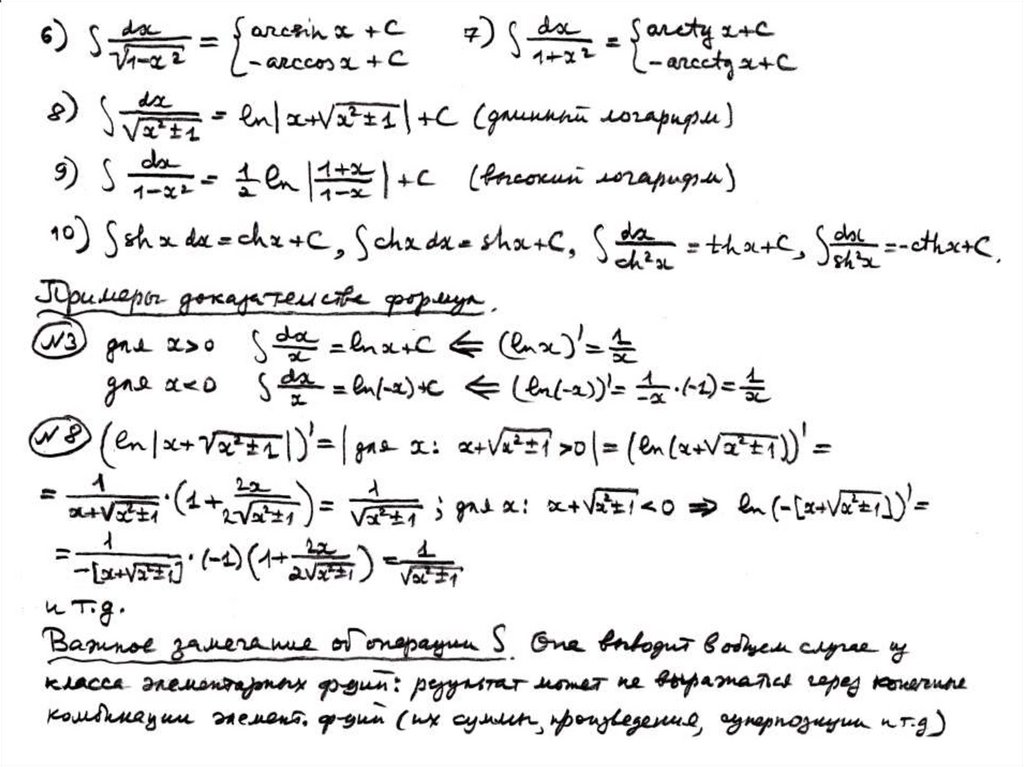 6) ∫ dx/√(1-x²) = { arcsin x + C ; -arccos x + C   7) ∫ dx/(1+x²) = { arctg x + C ; -arcctg x + C
8) ∫ dx/√(x²±1) = ln|x+√(x²±1)| + C (длинный логарифм)
9) ∫ dx/(1-x²) = 1/2 ln |(1+x)/(1-x)| + C (высокий логарифм)
10) ∫ sh x dx = ch x + C, ∫ ch x dx = sh x + C, ∫ dx/ch²x = th x + C, ∫ dx/sh²x = -cth x + C.
Примеры доказательства формул.
№3 для x>0 ∫ dx/x = ln x + C ⇐ (ln x)' = 1/x
для x<0 ∫ dx/x = ln(-x) + C ⇐ (ln(-x))' = 1/(-x) · (-1) = 1/x
№8 (ln|x+√(x²±1)|)' = | для x: x+√(x²±1) > 0 | = (ln(x+√(x²±1)))' =
= 1/(x+√(x²±1)) · (1 + 2x/(2√(x²±1))) = 1/√(x²±1) ; для x: x+√(x²±1) < 0 ⇒ ln(-[x+√(x²±1)])' =
= 1/(-[x+√(x²±1)]) · (-1)(1 + 2x/(2√(x²±1))) = 1/√(x²±1)
и т.д.
Важное замечание об операции ∫. Она выводит в общем случае из
класса элементарных ф-ций: результат может не выражаться через конечные
комбинации элемент. ф-ций (их суммы, произведения, суперпозиции и т.д)